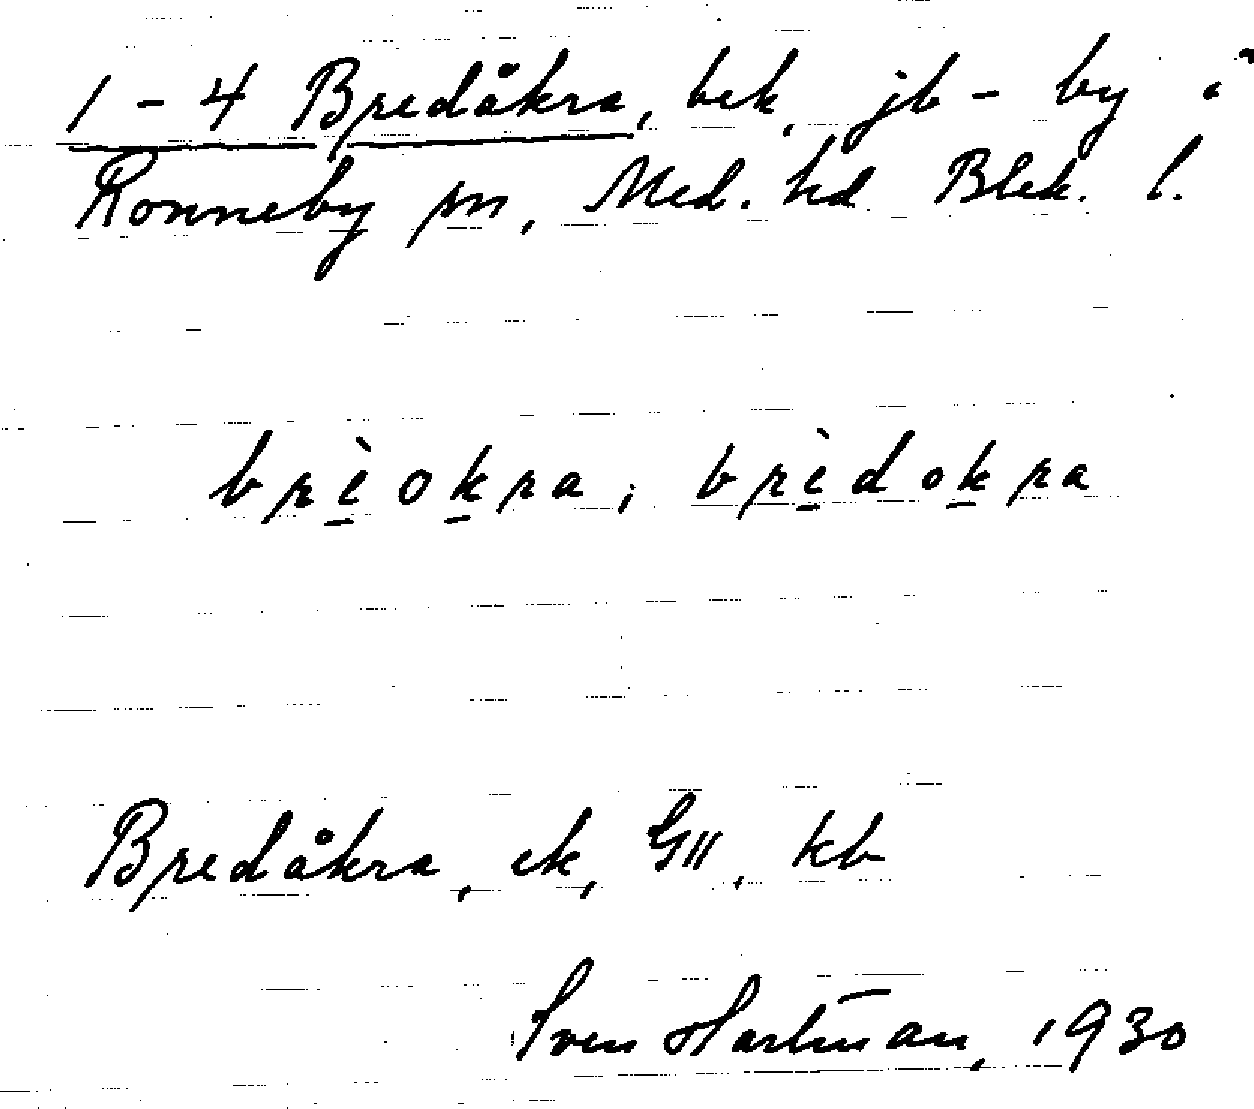 1 - 4 Bredåkra, bek, jb - by i
Ronneby sn, Med. hd Blek. l.
brèokra, brèdokra
Bredåkra, ek, GII, kb
Sven Hartman, 1930